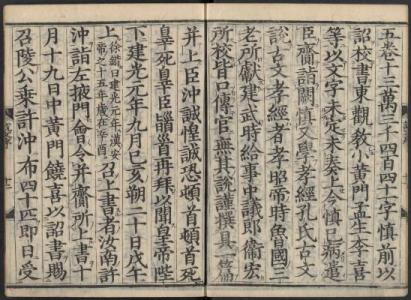 五卷十三萬三千四百四十字慎前以
詔校書東觀教小黃門孟生李喜
等以文字未定未奏上今慎已病遣
臣齎詣闕慎又學孝經孔氏古文
說古文孝經者孝昭帝時魯國三
老所獻建武時給事中議郎衛宏
所校皆口傳官無其說謹撰具一篇
并上臣沖誠惶誠恐頓首頓首死
辠死辠臣䭫首再拜以聞皇帝陛
下建光元年九月己亥朔二十日戊午
上徐鍇曰建光元年漢安帝之十五年歲在辛酉召上書者汝南許
沖詣左掖門會令并齎所上書十
月十九日中黃門饒喜以詔書賜
召陵公乘許沖布四十匹即日受